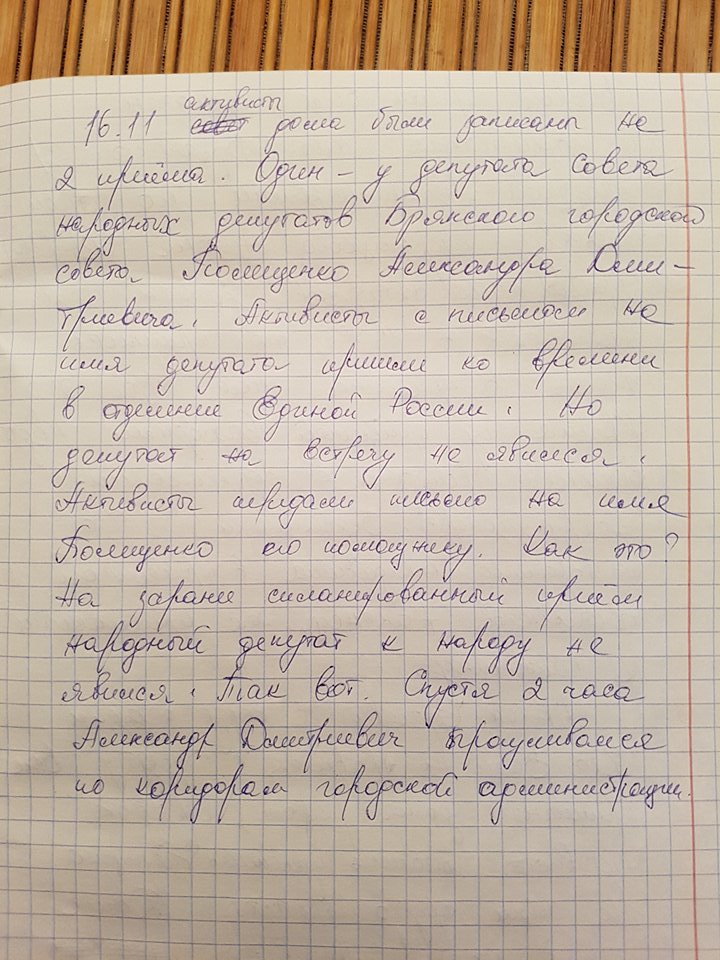 активисты
16.11 дома были записаны на
2 приёма. Один - у депутата Совета
народных депутатов Брянского городской
совета Полещенко Александра Дми-
триевича. Активисты с письмом на
имя депутата пришли ко времени
в отделение Единой России. Но
депутат на встречу не явился.
Активисты передали письмо на имя
Полещенко его помощнику. Как это?
На заране спланированный приём
народный депутат к народу не
явился. Так вот. Спустя 2 часа
Александр Дмитриевич прогуливался
по коридорам городской администрации.